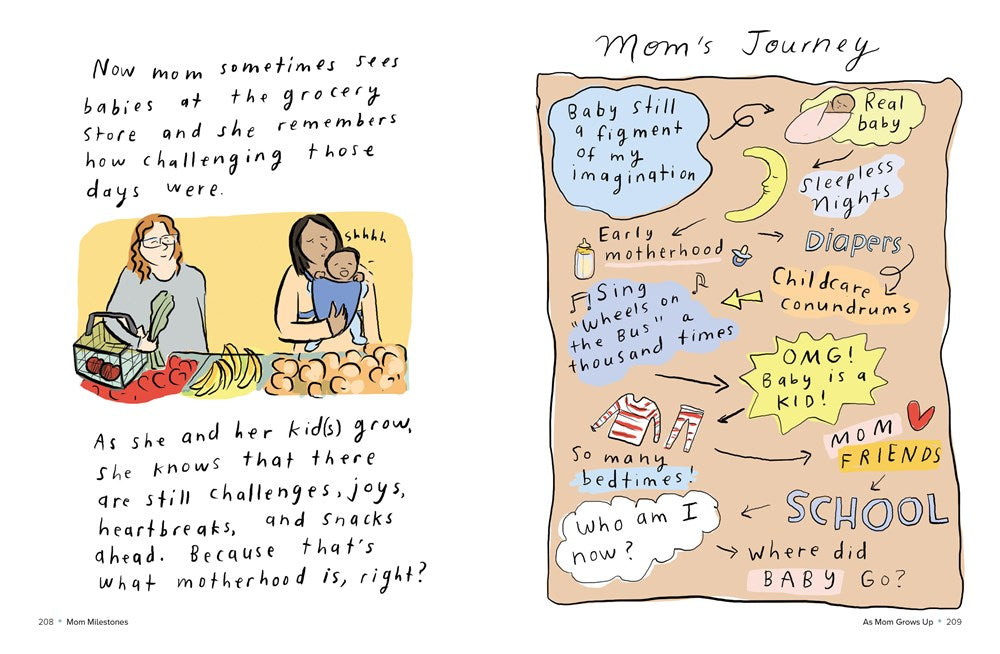 Now mom sometimes sees
babies at the grocery
store and she remembers
how challenging those
days were.
Shhhh
As she and her kid(s) grow,
she knows that there
are still challenges, joys,
heartbreaks, and snacks
ahead. Because that's
what motherhood is, right?
208 • Mom Milestones
Mom's Journey
Baby still
a figment
of my
imagination
Real
baby
Sleepless
Nights
Early
motherhood
Diapers
Childcare
conundrums
Sing
"Wheels on
the Bus" a
thousand times
OMG!
Baby is a
KID!
So many
bedtimes!
MOM
FRIENDS
SCHOOL
Who am I
now?
Where did
BABY GO?
As Mom Grows Up • 209